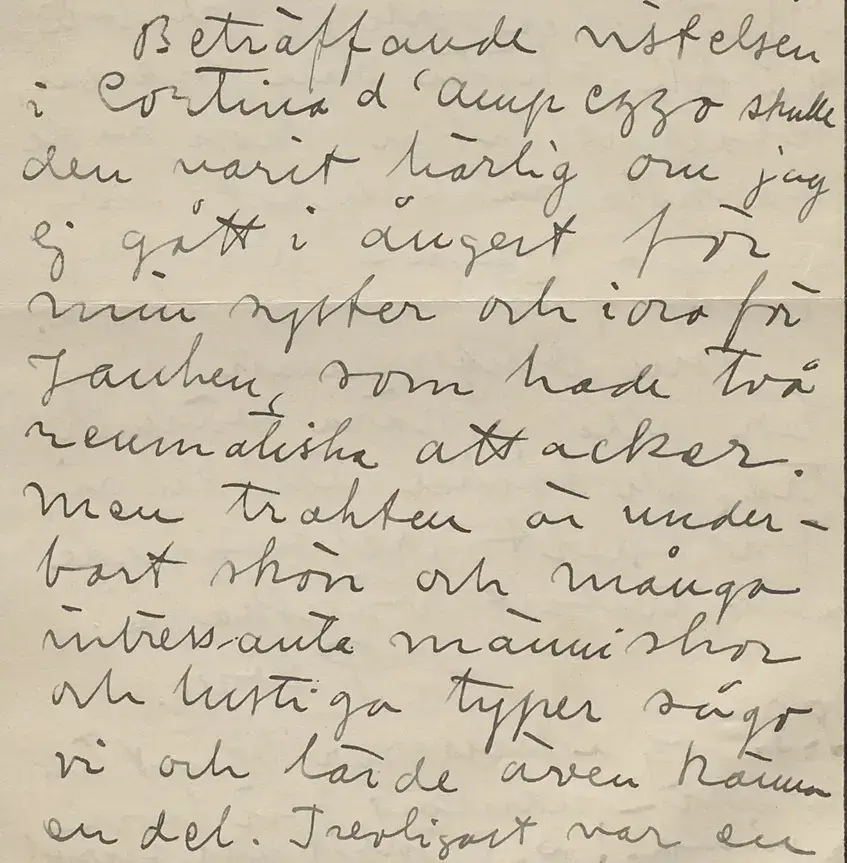 Beträffande vistelsen
i Cortina d'Ampezzo skulle
den varit härlig om jag
ej gått i ångest för
min syster och i oro för
som hade två
reumatiska attacker.
Men trakten är under-
bart skön och många
intressanta människor
och lustiga typer sågo
vi och lärde även känna
en del. Trevligast var en